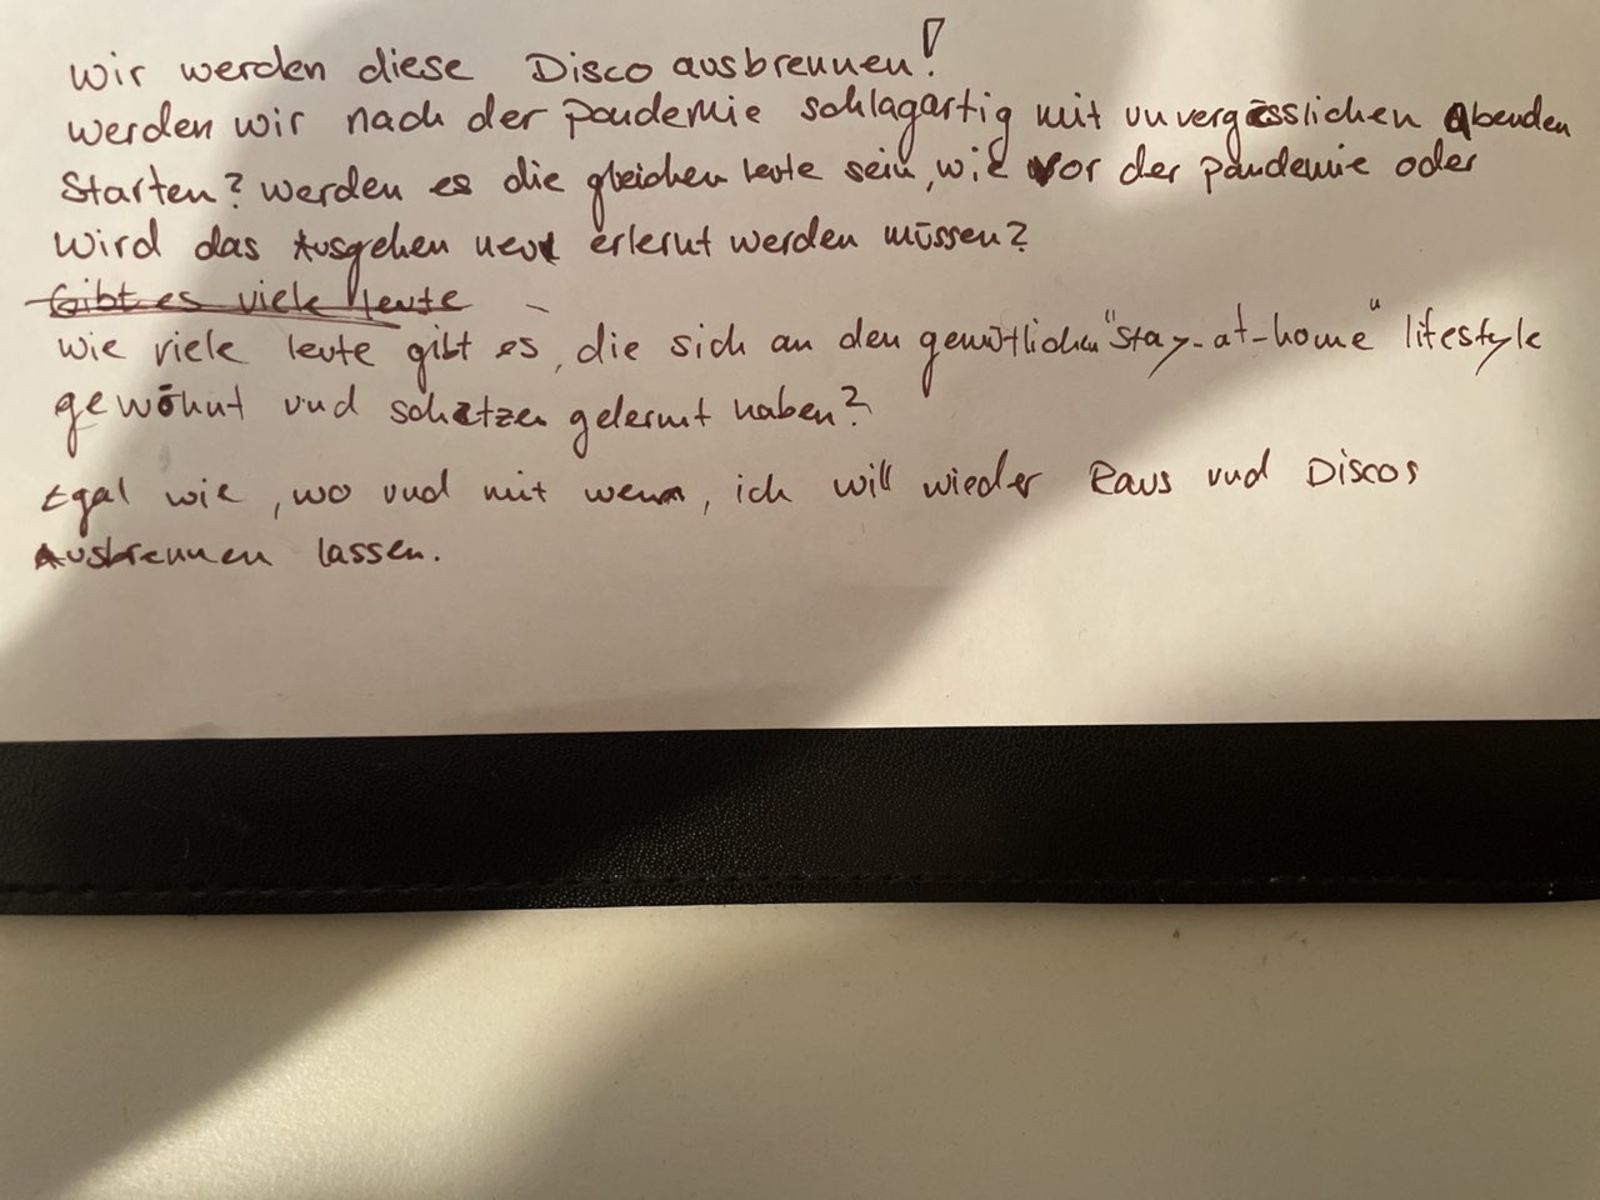 Wir werden diese Disco ausbrennen!
Werden wir nach der Pandemie schlagartig mit unvergesslichen Abenden
Starten? Werden es die gleichen Leute sein, wie vor der Pandemie oder
Wird das Ausgehen neu erlernt werden müssen?
Gibt es viele Leute
Wie viele Leute gibt es, die sich an den gemütlichen "Stay-at-home" lifestyle
gewöhnt und schätzen gelernt haben?
Egal wie, wo und mit wem, ich will wieder Raus und Discos
Ausbrennen lassen.